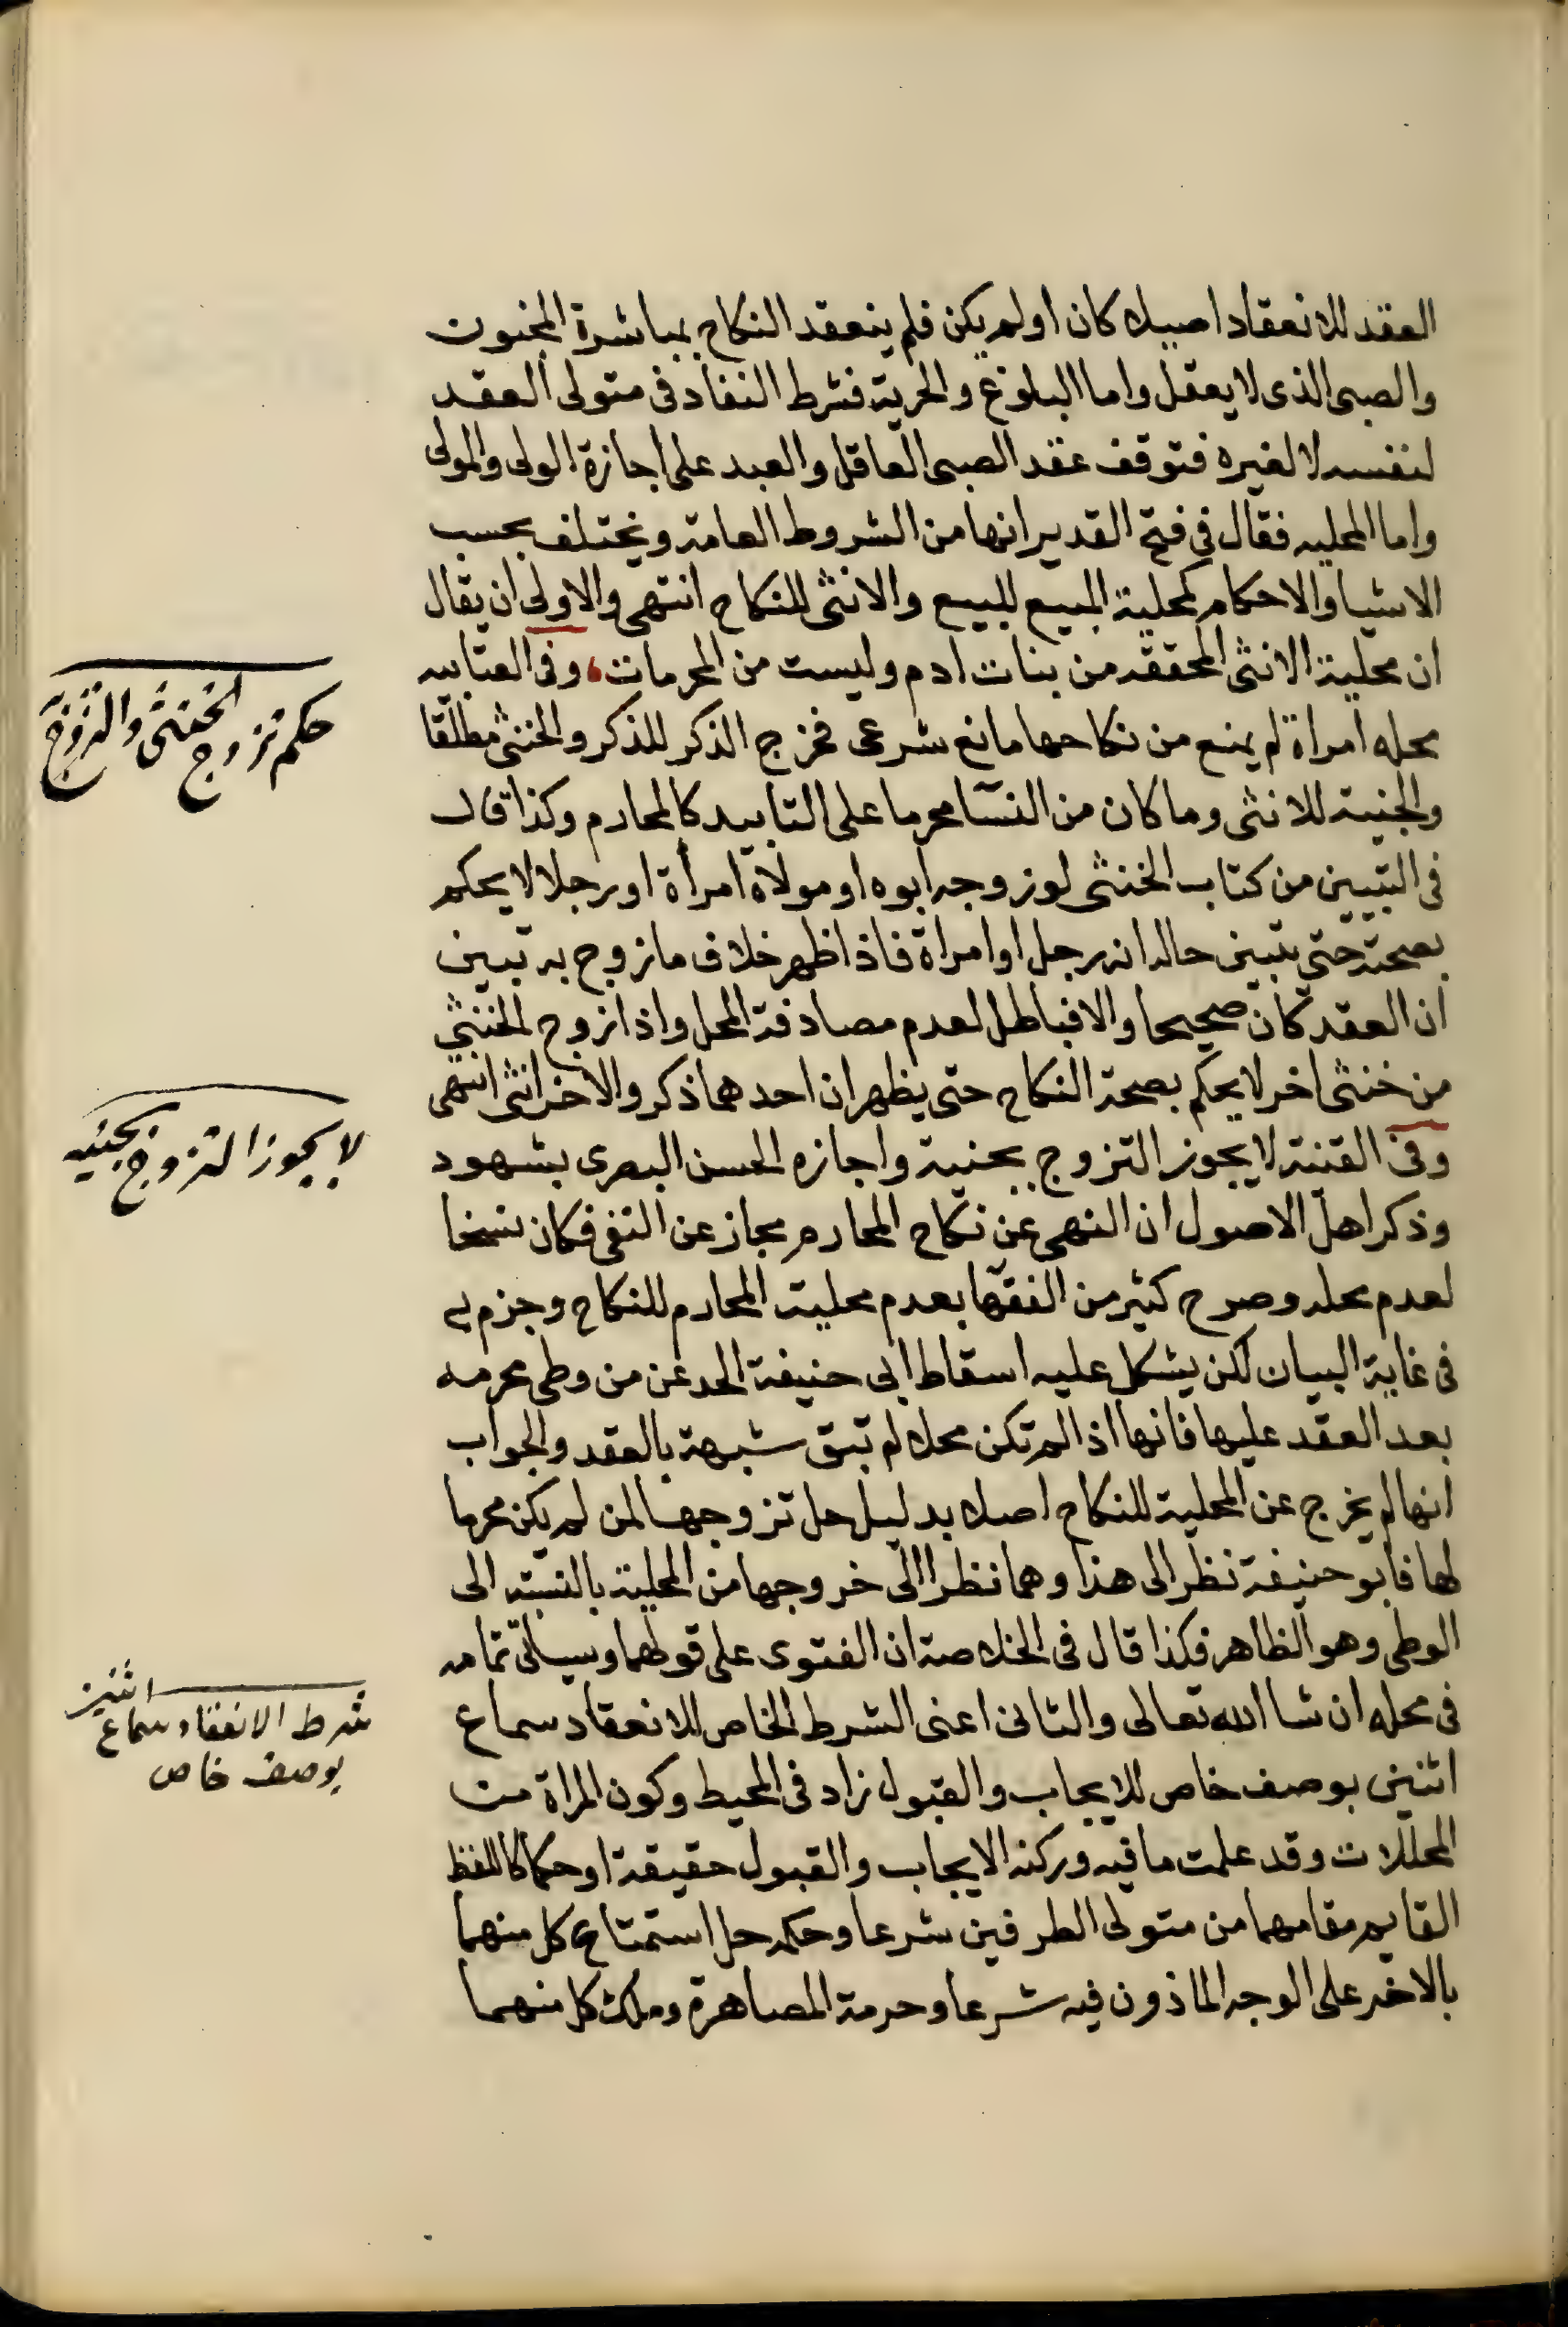 العقد للانعقاد اصيلا كان اولم يكن فلم ينعقد النكاح بمباشرة المجنون
والصبى الذى لا يعقل واما البلوغ والحرية فشرط النفاذ فى متولى العقد
لنفسه لا لغيره فتوقف عقد الصبى العاقل والعبد على اجازة الولى والمولى
واما المحليه فقال فى فتح القدير انها من الشروط العامة ويختلف بحسب
الاشيا والاحكام كمحلية المبيع للبيع والانثى للنكاح انتهى والاولى ان يقال
ان محلية الانثى المحققه من بنات ادم وليست من المحرمات، وفى العنايه
محله امراة لم يمنع من نكاحها مانع شرعى فخرج الذكر للذكر والخنثى مطلقا
والجنية للانثى وما كان من النسآ محرما على التابيد كالمحارم وكذا قال
فى التبيين من كتاب الخنثى لو زوجه ابوه او مولاه امراة او رجلا لا يحكم
بصحته حتى يتبين حاله انه رجل او امراة فاذا ظهر خلاف ما زوج به تبين
ان العقد كان صحيحا والا فباطل لعدم مصادفة المحل واذا زوج الخنثى
من خنثى اخر لا يحكم بصحة النكاح حتى يظهر ان احدهما ذكر والاخر انثى انتهى
وفى القنية لا يجوز التزوج بجنية واجازه الحسن البصرى بشهود
وذكر اهل الاصول ان النهى عن نكاح المحارم مجاز عن النفى فكان نسخا
لعدم محله وصرح كثير من الفقهآ بعدم محلية المحارم للنكاح وجزم به
فى غاية البيان لكن يشكل عليه اسقاط ابى حنيفة الحد عن من وطى محرمه
بعد العقد عليها فانها اذا لم تكن محلا لم تبق شبهة بالعقد والجواب
انها لم يخرج عن المحلية للنكاح اصلا بدليل حل تزوجها لمن لم يكن محرما
لها فابو حنيفة نظر الى هذا وهما نظرا الى خروجها من المحلية بالنسبة الى
الوطى وهو الظاهر فكذا قال فى الخلاصة ان الفتوى على قولهما وسياتى تمامه
فى محله ان شا الله تعالى والثانى اعنى الشرط الخاص للانعقاد سماع
اثنين بوصف خاص للايجاب والقبول زاد فى المحيط وكون المراة من
المحللات وقد علمت ما فيه وركنه الايجاب والقبول حقيقة او حكما كاللفظ
القايم مقامهما من متولى الطرفين شرعا وحكمه حل استمتاع كل منهما
بالاخر على الوجه الماذون فيه شرعا وحرمة المصاهرة وملك كل منهما
حكم تزوج الخنثى والتزوج
لا يجوز التزوج بجنيه
شرط الانعقاد سماع اثنين
بوصف خاص